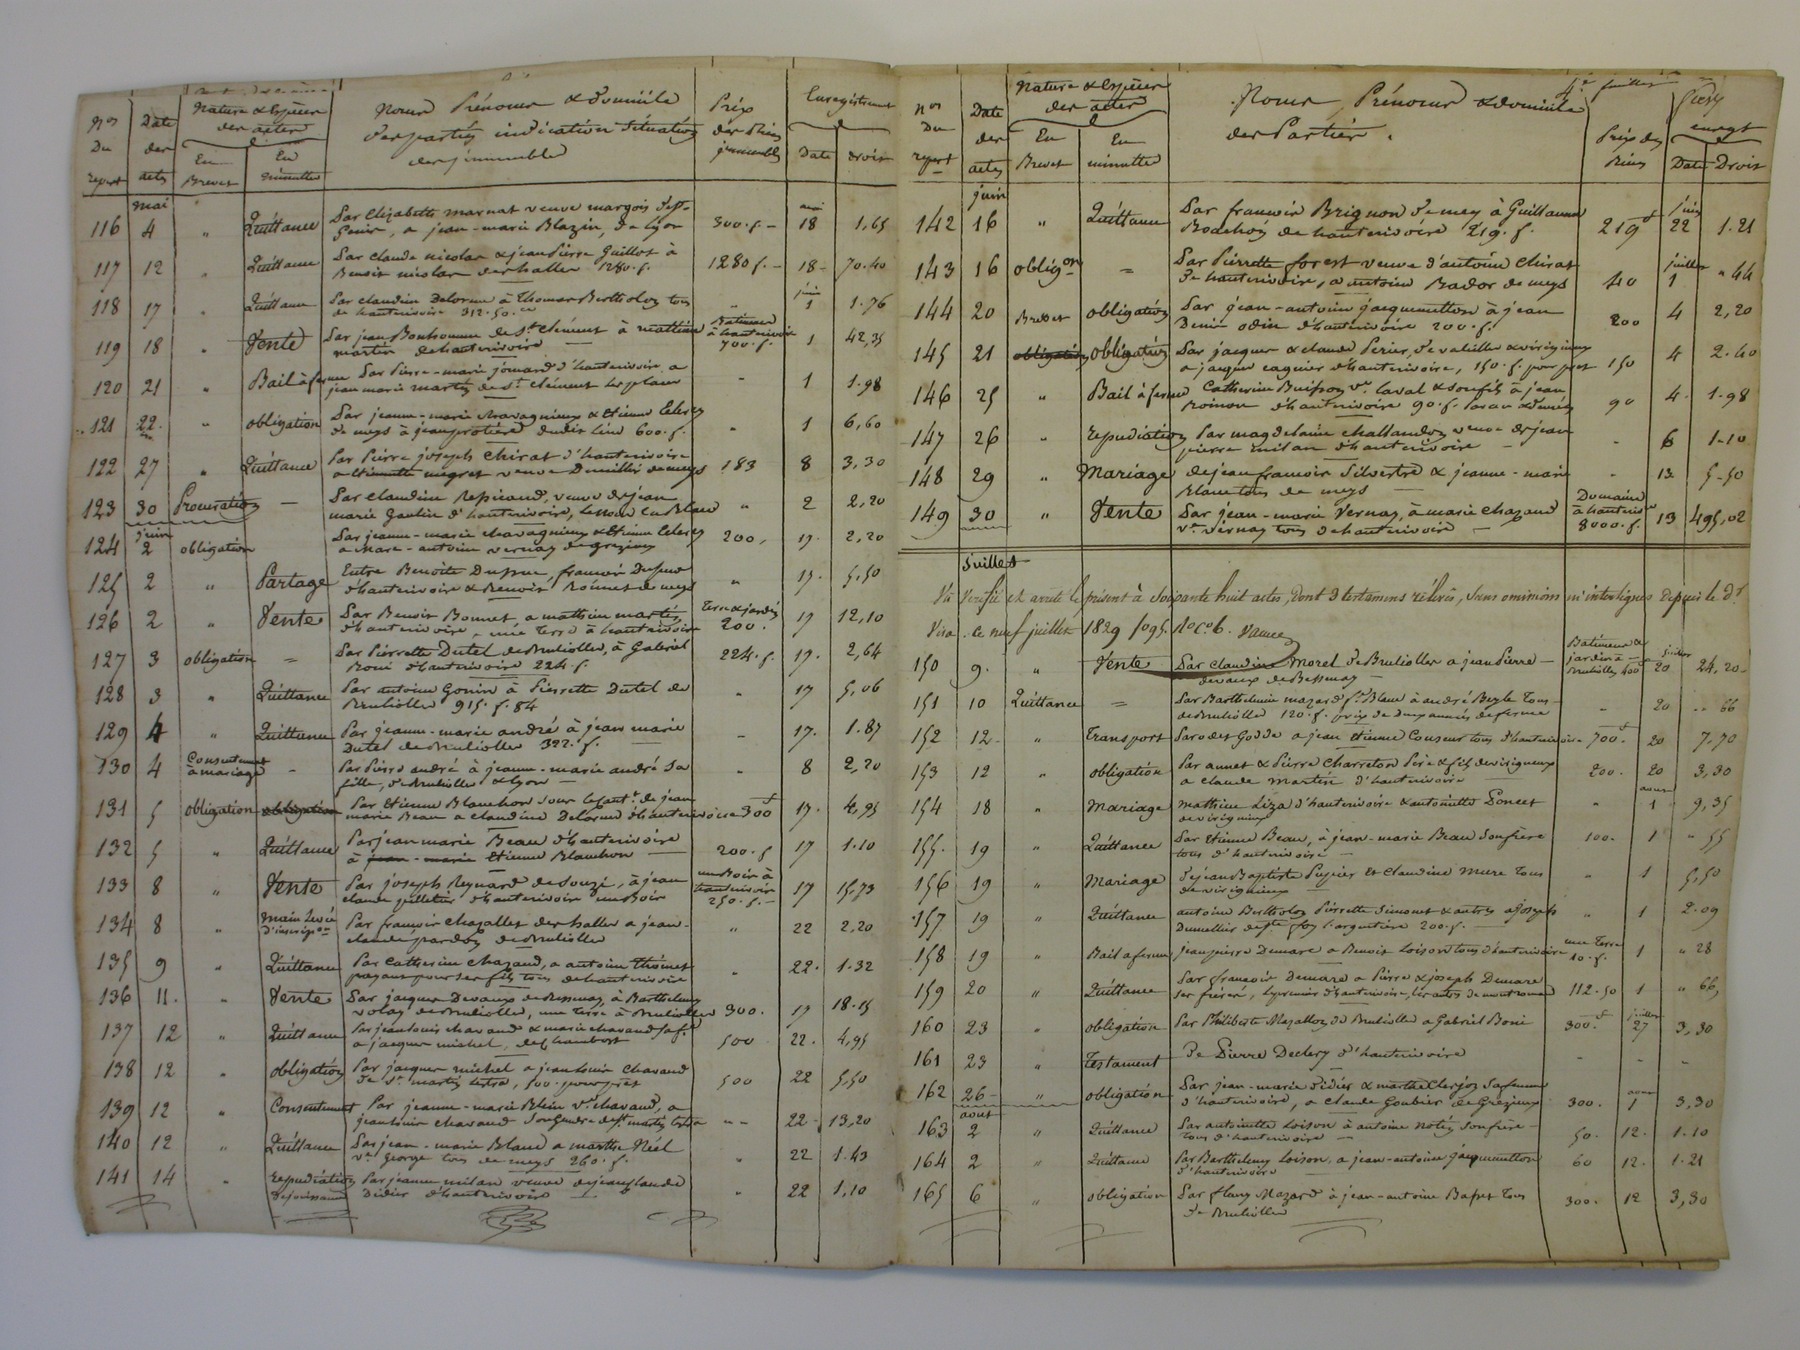 Nos Du repert
Date des actes
Nature & Espèces des actes
En Brevet
En minutte
Noms Prénoms & domicile
des parties indication Situation
des immeuble
Prix des Biens immeubles
Enregistrement
Date
droits
mai
116 4 " Quittance Par Elizabeth marnat veuve margois
a jean-marie Blazin, de Lyon 300. f. - mai 18 1,65
117 12 " Quittance Par Claude nicolas & jean Pierre Guillot à
Benoit nicolas des halles 1280. f. 1280 f. - 18 - 70.40
118 17 " Quittance Par claudine Delorme à Thomas Bertholon tous
de hauterivoire 312.50.ce " juin 1 1.76
119 18 " Vente Par jean Bonhomme de St. clément à mathieu
martin de hauterivoire Batiment à hauterivoire 700. f. 1 42,35
120 21 " Bail à ferme Par Pierre-marie jomard d'hauterivoire a
jean marie martin de St. clément les places - 1 1.98
121 22 " obligation Par jeanne-marie chavagnieux & Etienne Celery
de meys à jean protière dudit lieu 600. f. " 1 6,60
122 27 " Quittance Par Pierre joseph Chirat d'hauterivoire
a Etiennette megret veuve Dumillié de meys 183 8 3,30
123 30 Procuration - Par claudine Repicaud, veuve de jean
marie Goulin d'hauterivoire, le nom en Blanc " 2 2,20
juin
124 2 obligation Par jeanne-marie chavagnieux & Etienne Celery
a Marc-antoine vernay de grezieux 200, 17. 2,20
125 2 " Partage Entre Benoite Dupuy, francois Dupuy
d'hauterivoire & Benoit Bonnet de meys " 17. 5,50
126 2 " Vente Par Benoit Bonnet, a mathieu martin
d'hauterivoire, une Terre à hauterivoire Terre & jardin 200. 17 12,10
127 3 obligation = Par Pierrette Dutel de Brulioles, à Gabriel
Boni d'hauterivoire 224. f. 224. f. 17. 2,64
128 3 " Quittance Par antoine Gonin à Pierrette Dutel de
Brulioles 915. f. 84 " 17 5,06
129 4 " Quittance Par jeanne-marie andré à jean marie
Dutel de Brulioles 322. f. - 17. 1.87
130 4 Consentement à mariage - Par Pierre andré à jeanne-marie andré Sa
fille, de Brulioles & Lyon " 8 2,20
131 5 obligation obligation Par Etienne Blanchon sous le caut.t de jean
marie Beau a claudine Delorme d'hauterivoire 300 f 17. 4,95
132 5 " Quittance Par jean marie Beau d'hauterivoire
à jean-marie Etienne Blanchon 200. f 17 1.10
133 8 " Vente Par joseph Reynard de Souzi, à jean
claude pelletier d'hauterivoire un Bois un Bois à hauterivoire 250. f. - 17 15,73
134 8 " Main Levée d'inscrip.on Par francois Chazalles des halles a jean-
claude pardon de Brulioles " 22 2,20
135 9 " Quittance Par Catherine Chazaud, a antoine Thomet
payant pour ses fils tous de hauterivoire " 22. 1.32
136 11. " Vente Par jacques Devaux de Bessenay, à Barthelemy
volay de Brulioles, une Terre à Brulioles 300. 17 18.15
137 12 " Quittance Par jean louis chavand & marie chavand
a jacques michel, de chambost 500 22. 4,95
138 12 " obligation Par jacques michel a jean louis chavand
de St. martin Lestra, 500. pour prêt 500 22 5,50
139 12 " Consentement Par jeanne-marie Blein Ve. chavand, a
jean louis chavand Son Gendre de St. martin Lestra " - 22. 13,20
140 12 " Quittance Par jean-marie Blanc a marthe Neel
ve. George tous de meys 260. f. " 22 1.43
141 14 " Repudiation Par jeanne milan veuve de jean claude
Didier d'hauterivoire " 22 1,10
Nos Du repert
Date des actes
Nature & Espèces des actes
En Brevet
En minutte
Noms, Prénoms & domicile
des Parties.
Prix des Biens
juillet
enregt
Date Droit
juin
142 16 " Quittance Par francois Brignon de meys à Guillaume
de hauterivoire 219. f. 219 f juin 22 1.21
143 16 oblig.on = Par Pierrette forest veuve d'antoine Chirat
de hauterivoire, a antoine Bador de meys 40 juillet 1 " 44
144 20 Brevet obligation Par jean-antoine jacquemetton à jean
Denis odin d'hauterivoire 200. f. 200 4 2,20
145 21 obligation obligation Par jacques & claude Perier, de valeille & virigneux
a jacques cagnier d'hauterivoire, 150. f. pour pret 150 4 2.40
146 25 " Bail à ferme Catherine Buisson ve. Laval & son fils à jean
d'hauterivoire 90. f. 90 4. 1.98
147 26 " Repudiation Par magdelaine challandon veuve de jean
pierre milan d'hauterivoire - 6 1-10
148 29 " Mariage de jean francois Silvestre & jeanne-marie
Blanc tous de meys - 13 5-50
149 30 " Vente Par jean-marie Vernay, à marie chazaud
ve. vernay tous de hauterivoire Domaine à hauterivoire 8000. f. 13 495,02
Juillet
Vu Verifié et arreté le présent à Soixante huit actes, Dont 3 testamens réservés, Sans omissions ni interlignes Depuis le Dr.
Visa. le neuf juillet 1829 fo 95. Ro c. 6. vanne
150 9. " Vente Par claudine Morel de Brulioles a jean Pierre
devaux de Bessenay - Batiment & jardin à Brulioles 400 juillet 20 24,20
151 10 Quittance = Par Barthelemie mazard fe. Blanc à andré Beyle tous
de Brulioles 120. f. prix de deux années de ferme - 20 " 66
152 12 " Transport Par odet Godde a jean Etienne Couseur tous d'hauterivoire 700 f. 20 7.70
153 12 " obligation Par annet & Pierre Charreton Père & fils de virigneux
a claude martin d'hauterivoire 200. 20 3,30
154 18 " Mariage mathieu Liza d'hauterivoire & antoinette Poncet
de virigneux " aout 1 9,35
155. 19 " Quittance Par Etienne Beau, à jean-marie Beau son frère
tous d'hauterivoire 100. 1 " 55
156 19 " Mariage De jean Baptiste Pupier et Claudine mure tous
de virigneux " 1 5,50
157 19 " Quittance antoine Bertholon Pierrette Simonet & autres a joseph
Dumillier de Ste foy l'argentière 200. f. " 1 2.09
158 19 " Bail a ferme jean pierre Demare a Benoit Loison tous d'hauterivoire une Terre 10. f. 1 " 28
159 20 " Quittance Par francois Demare a Pierre & joseph Demare
ses frères, le premier d'hauterivoire, les autres de montromand 112.50 1 " 66
160 23 " obligation Par Philiberte Mazallon de Brulioles a Gabriel Boni 300. f juillet 27 3,30
161 23 " Testament De Pierre Declery d'hauterivoire - - -
162 26 - " obligation Par jean-marie didier & marthe Clerjon Sa femme
d'hauterivoire, a claude Goubier de Grezieux 300. aout 1 3,30
aout
163 2 " Quittance Par antoinette Loison à antoine Notin son frère
tous d'hauterivoire 50. 12. 1.10
164 2 " Quittance Par Barthelemy Loison, a jean-antoine jacquemetton
d'hauterivoire 60 12. 1.21
165 6 " obligation Par fleury Mazard à jean-antoine Bafset tous
de Brulioles 300. 12 3,30